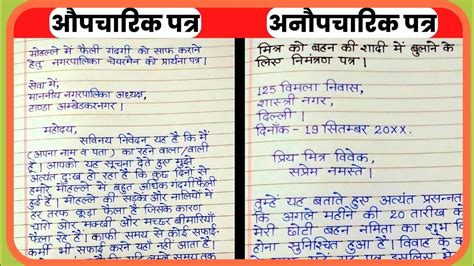 औपचारिक पत्र
मोहल्ले में फैली गंदगी को साफ कराने
हेतु नगरपालिका चेयरमैन की प्रार्थना पत्र।
सेवा में,
माननीय नगरपालिका अध्यक्ष,
टाण्डा अम्बेडकरनगर।
महोदय,
सविनय निवेदन यह है कि मैं
(अपना नाम व पता) का रहने वाला/वाली
हूँ। आपको यह सूचना देते हुए मुझे
अत्यंत दुःख हो रहा है कि कुछ दिनों से
हमारे मोहल्ले में बहुत अधिक गंदगी फैली
हुई है। मोहल्ले की सड़के और नालियों में
हर तरफ कूड़ा फैला है जिसके कारण
चारो ओर मक्खी और मच्छर बीमारियाँ
फैला रहे हैं। काफी समय से कोई सफाई-
कर्मी भी सफाई करने यहाँ नहीं आता है।
अनौपचारिक पत्र
मित्र को बहन की शादी में बुलाने के
लिए निमंत्रण पत्र।
125 विमला निवास,
शास्त्री नगर,
दिल्ली।
दिनाँक - 19 सितम्बर 20xx.
प्रिय मित्र विवेक,
सप्रेम नमस्ते।
तुम्हें यह बताते हुए अत्यंत प्रसन्नत
कि अगले महीने की 20 तारीख क
मेरी छोटी बहन नमिता का शुभ वि
होना सुनिश्चित हुआ है। विवाह के क